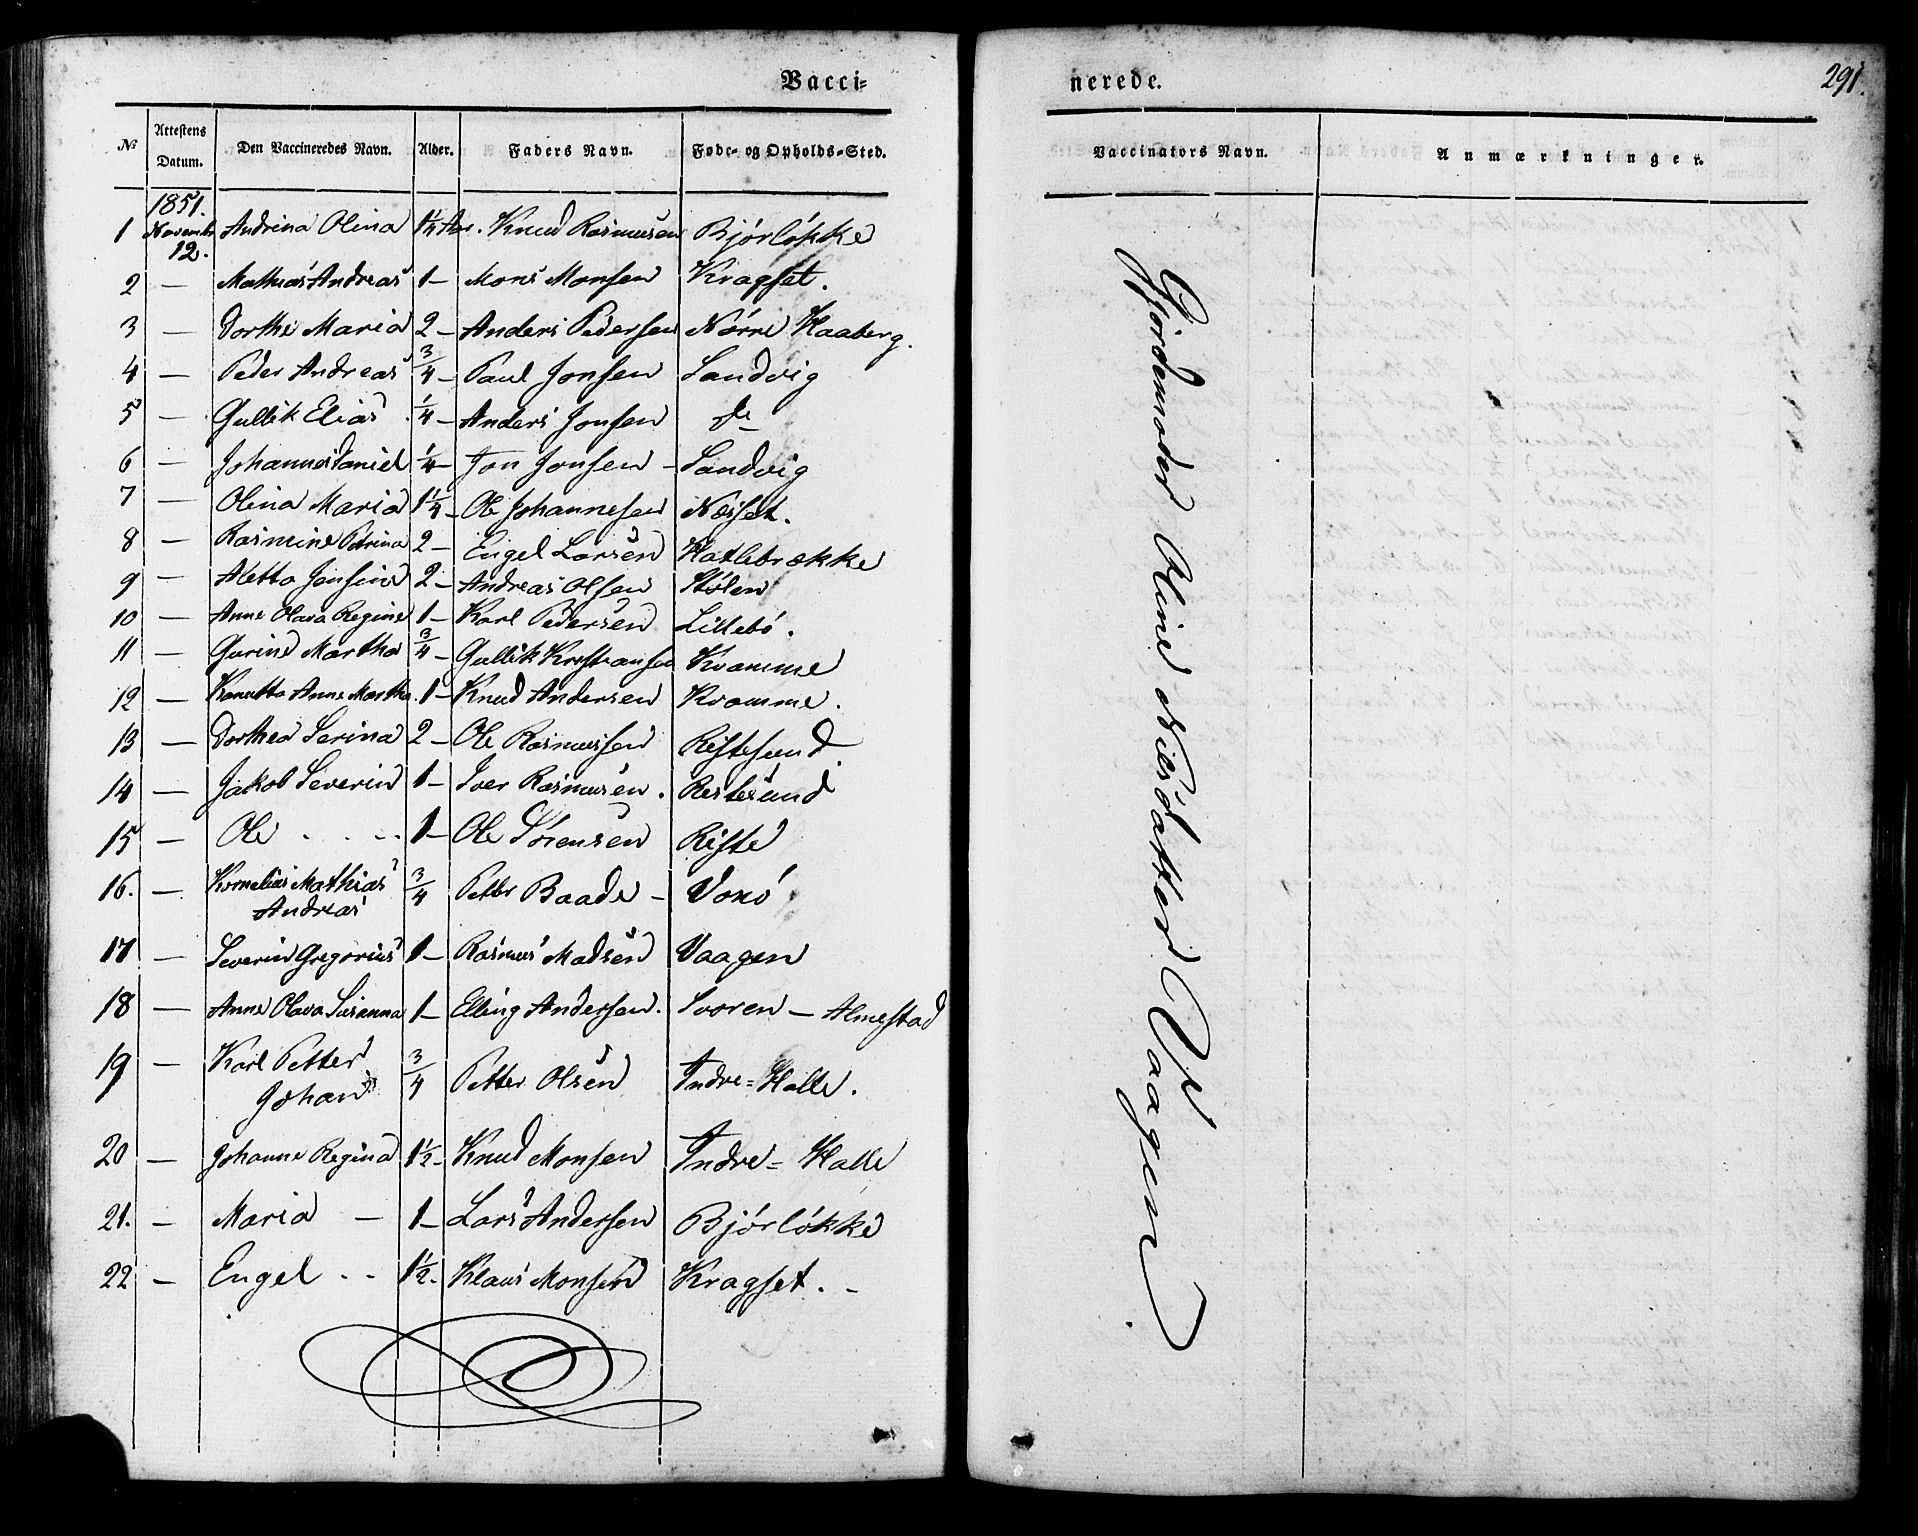 Vacci=
nerede.
291.
№ Attestens Datum. Den Vaccineredes Navn. Alder. Faders Navn. Føde- og Opholds-Sted.
Vaccinators Navn. Anmærkninger.
1851.
1 Novembr 12. Andrina Olina 1¼ Aar. Knud Rasmusen Bjórlókke
2 — Mathias Andreas 1 — Mons Monsen Kragset.
3 — Dorthe Maria 2 — Anders Pedersen Nórre Haaberg.
4 — Peder Andreas 3/4 — Paul Jonsen Sandvig
5 — Gullik Elias 1/4 — Anders Jonsen do
6 — Johannes Daniel 1/4 — Jon Jonsen — Sandvig
7 — Olina Maria 1¼ — Ole Johannesen Næsset.
8 — Rasmine Petrina 2 — Engel Larsen Hatlebrække
9 — Aletta Jensine 2 — Andreas Olsen Stólen
10 — Anne Olava Regine 1 — Karl Pedersen Lillebó.
11 — Gurine Martha 3/4 — Gullik Kristiansen Kvamme
12 — Kanutta Anne Martha. 1 — Knud Andersen Kvamme.
13 — Dorthea Serina 2 — Ole Rasmussen Ristesund.
14 — Jakob Severin 1 — Iver Rasmusen. Restesund
15 — Ole . . - . 1 — Ole Sórensen Riste
16. — Kornelius Mathias 3/4 Petter Baade — Voxó
Andreas
17 — Severin Gregorius 1 — Rasmus Madsen Vaagen
18 — Anne Olava Susanna 1 — Elling Andersen. Svoren — Almestad
19 — Karl Petter 3/4 Petter Olsen Indre = Halle.
Johan
20 — Johanne Regina 1½ — Knud Monsen Indre = Halle
21. — Maria — 1 — Lars Andersen Bjórlókke
22 — Engel . - 1½ - Klaus Monsen Kragset. -
Gjordemoder Oline Nilsdatter Vaagen.